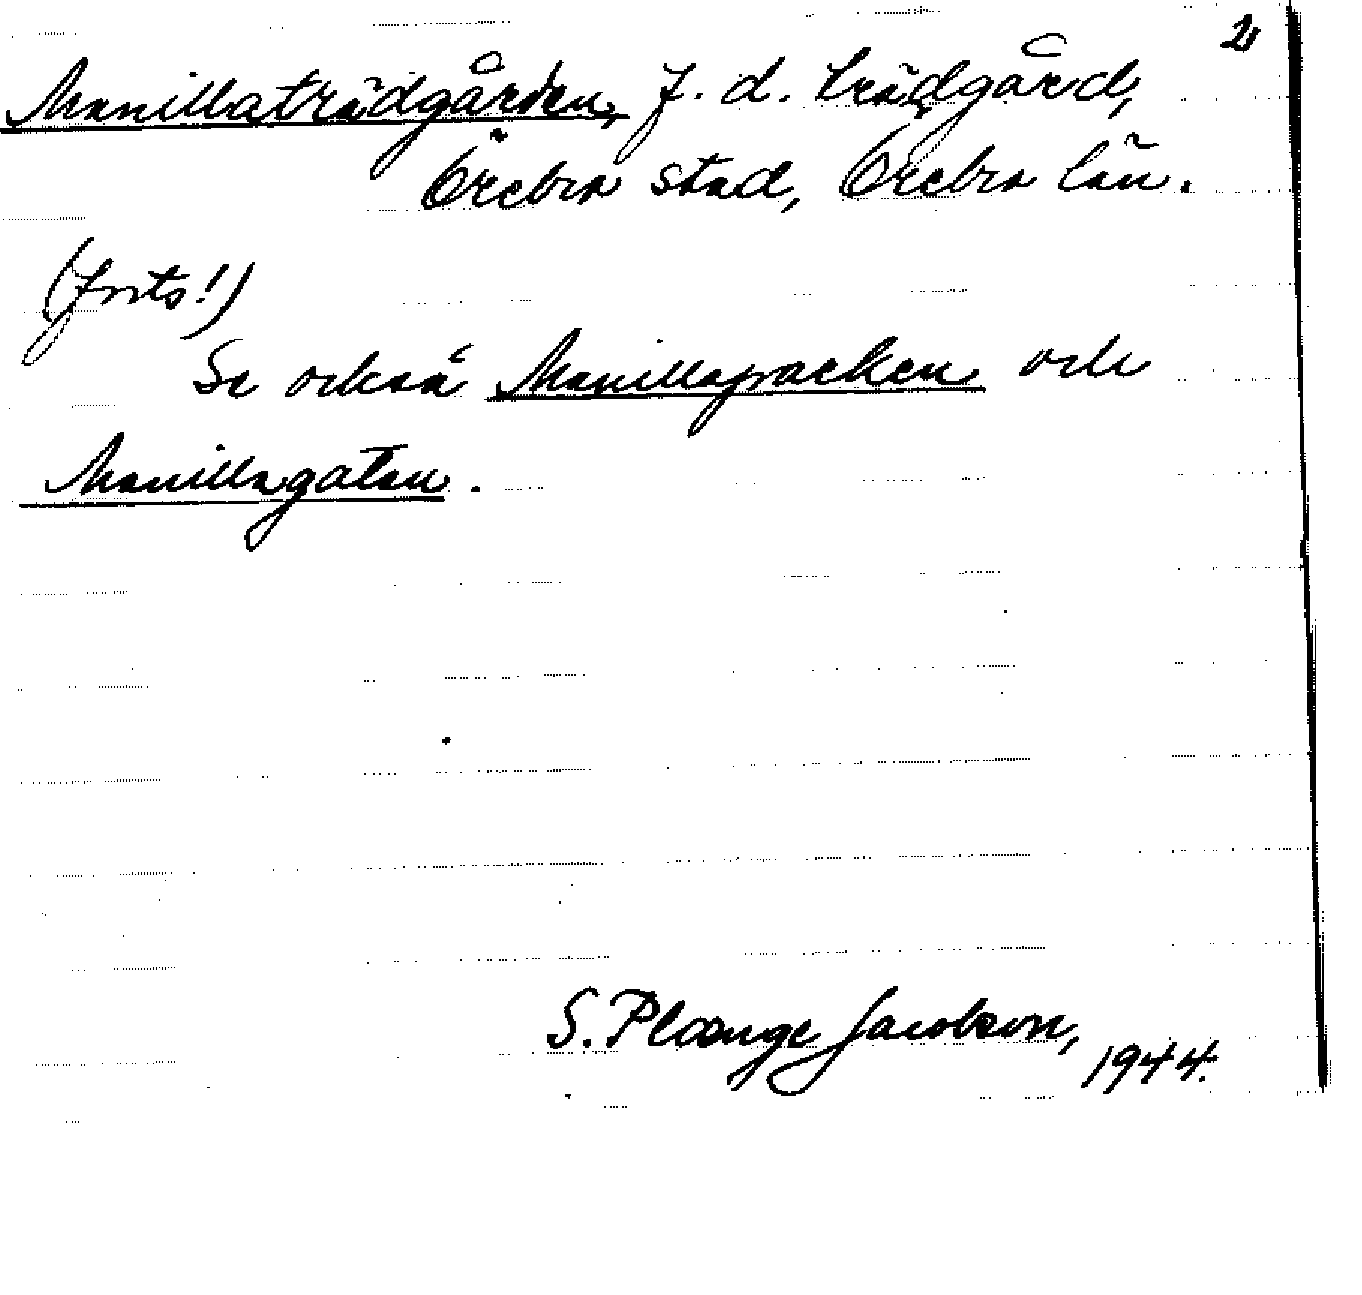 2
Manillaträdgården, f. d. trädgård,
Örebro stad, Örebro län.
(forts!)
Se också Manillaparken och
Manillagatan.
S. Plaenge Jacobson,
1944.